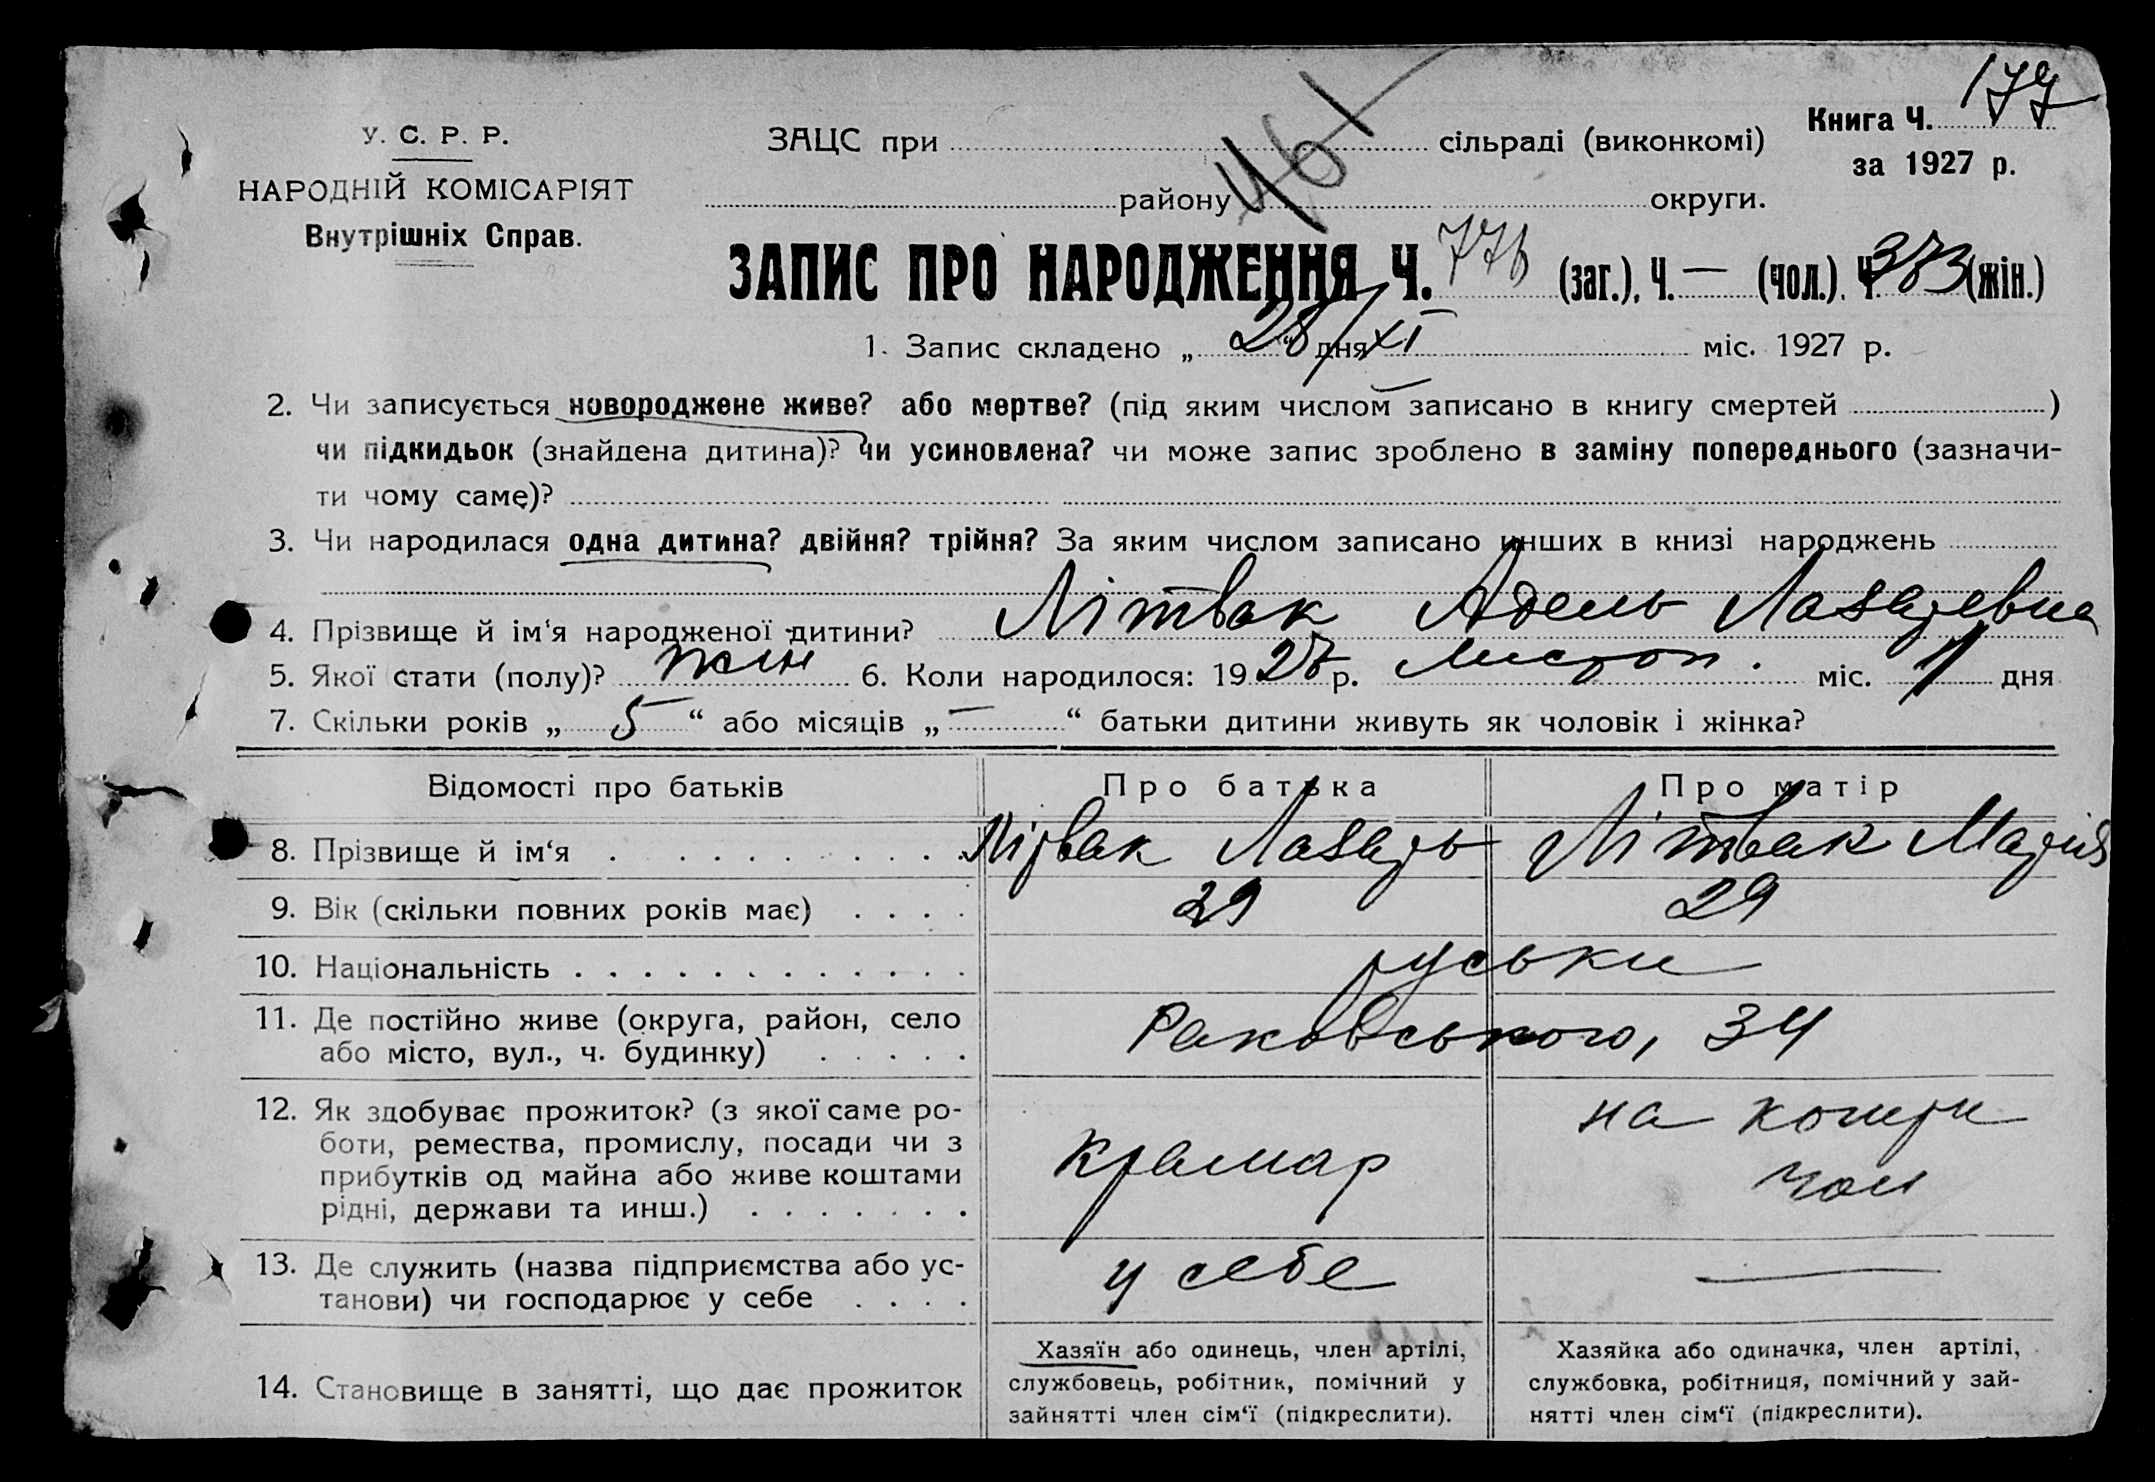 177
У. С. Р. Р.
НАРОДНІЙ КОМІСАРІЯТ
Внутрішніх Справ.
461
ЗАЦС при сільраді (виконкомі)
району округи.
Книга Ч.
за 1927 р.
ЗАПИС ПРО НАРОДЖЕННЯ Ч. 776 (заг.), Ч. — (чол.). Ч. 383 (жін.)
1. Запис складено „ 28 “ дня XI міс. 1927 р.
2. Чи записується новороджене живе? або мертве? (під яким числом записано в книгу смертей )
чи підкидьок (знайдена дитина)? чи усиновлена? чи може запис зроблено в заміну попереднього (зазначи-
ти чому саме)?
3. Чи народилася одна дитина? двійня? трійня? За яким числом записано инших в книзі народжень
4. Прізвище й ім‘я народженої дитини? Літвак Адель Лазаревна
5. Якої стати (полу)? жін 6. Коли народилося: 1927 р. Листоп. міс. 1 дня
7. Скільки років „ 5 “ або місяців „ — “ батьки дитини живуть як чоловік і жінка?
Відомості про батьків Про батька Про матір
8. Прізвище й ім‘я Літвак Лазарь Літвак Марія
9. Вік (скільки повних років має) 29 29
10. Національність руськи
11. Де постійно живе (округа, район, село
або місто, вул., ч. будинку) Раковського, 34
12. Як здобуває прожиток? (з якої саме ро-
боти, ремества, промислу, посади чи з
прибутків од майна або живе коштами
рідні, держави та инш.) крамар на кошти чол
13. Де служить (назва підприємства або ус-
танови) чи господарює у себе у себе —
14. Становище в занятті, що дає прожиток
Хазяїн або одинець, член артілі,
службовець, робітник, помічний у
зайнятті член сім‘ї (підкреслити).
Хазяйка або одиначка, член артілі,
службовка, робітниця, помічний у зай-
нятті член сім‘ї (підкреслити).